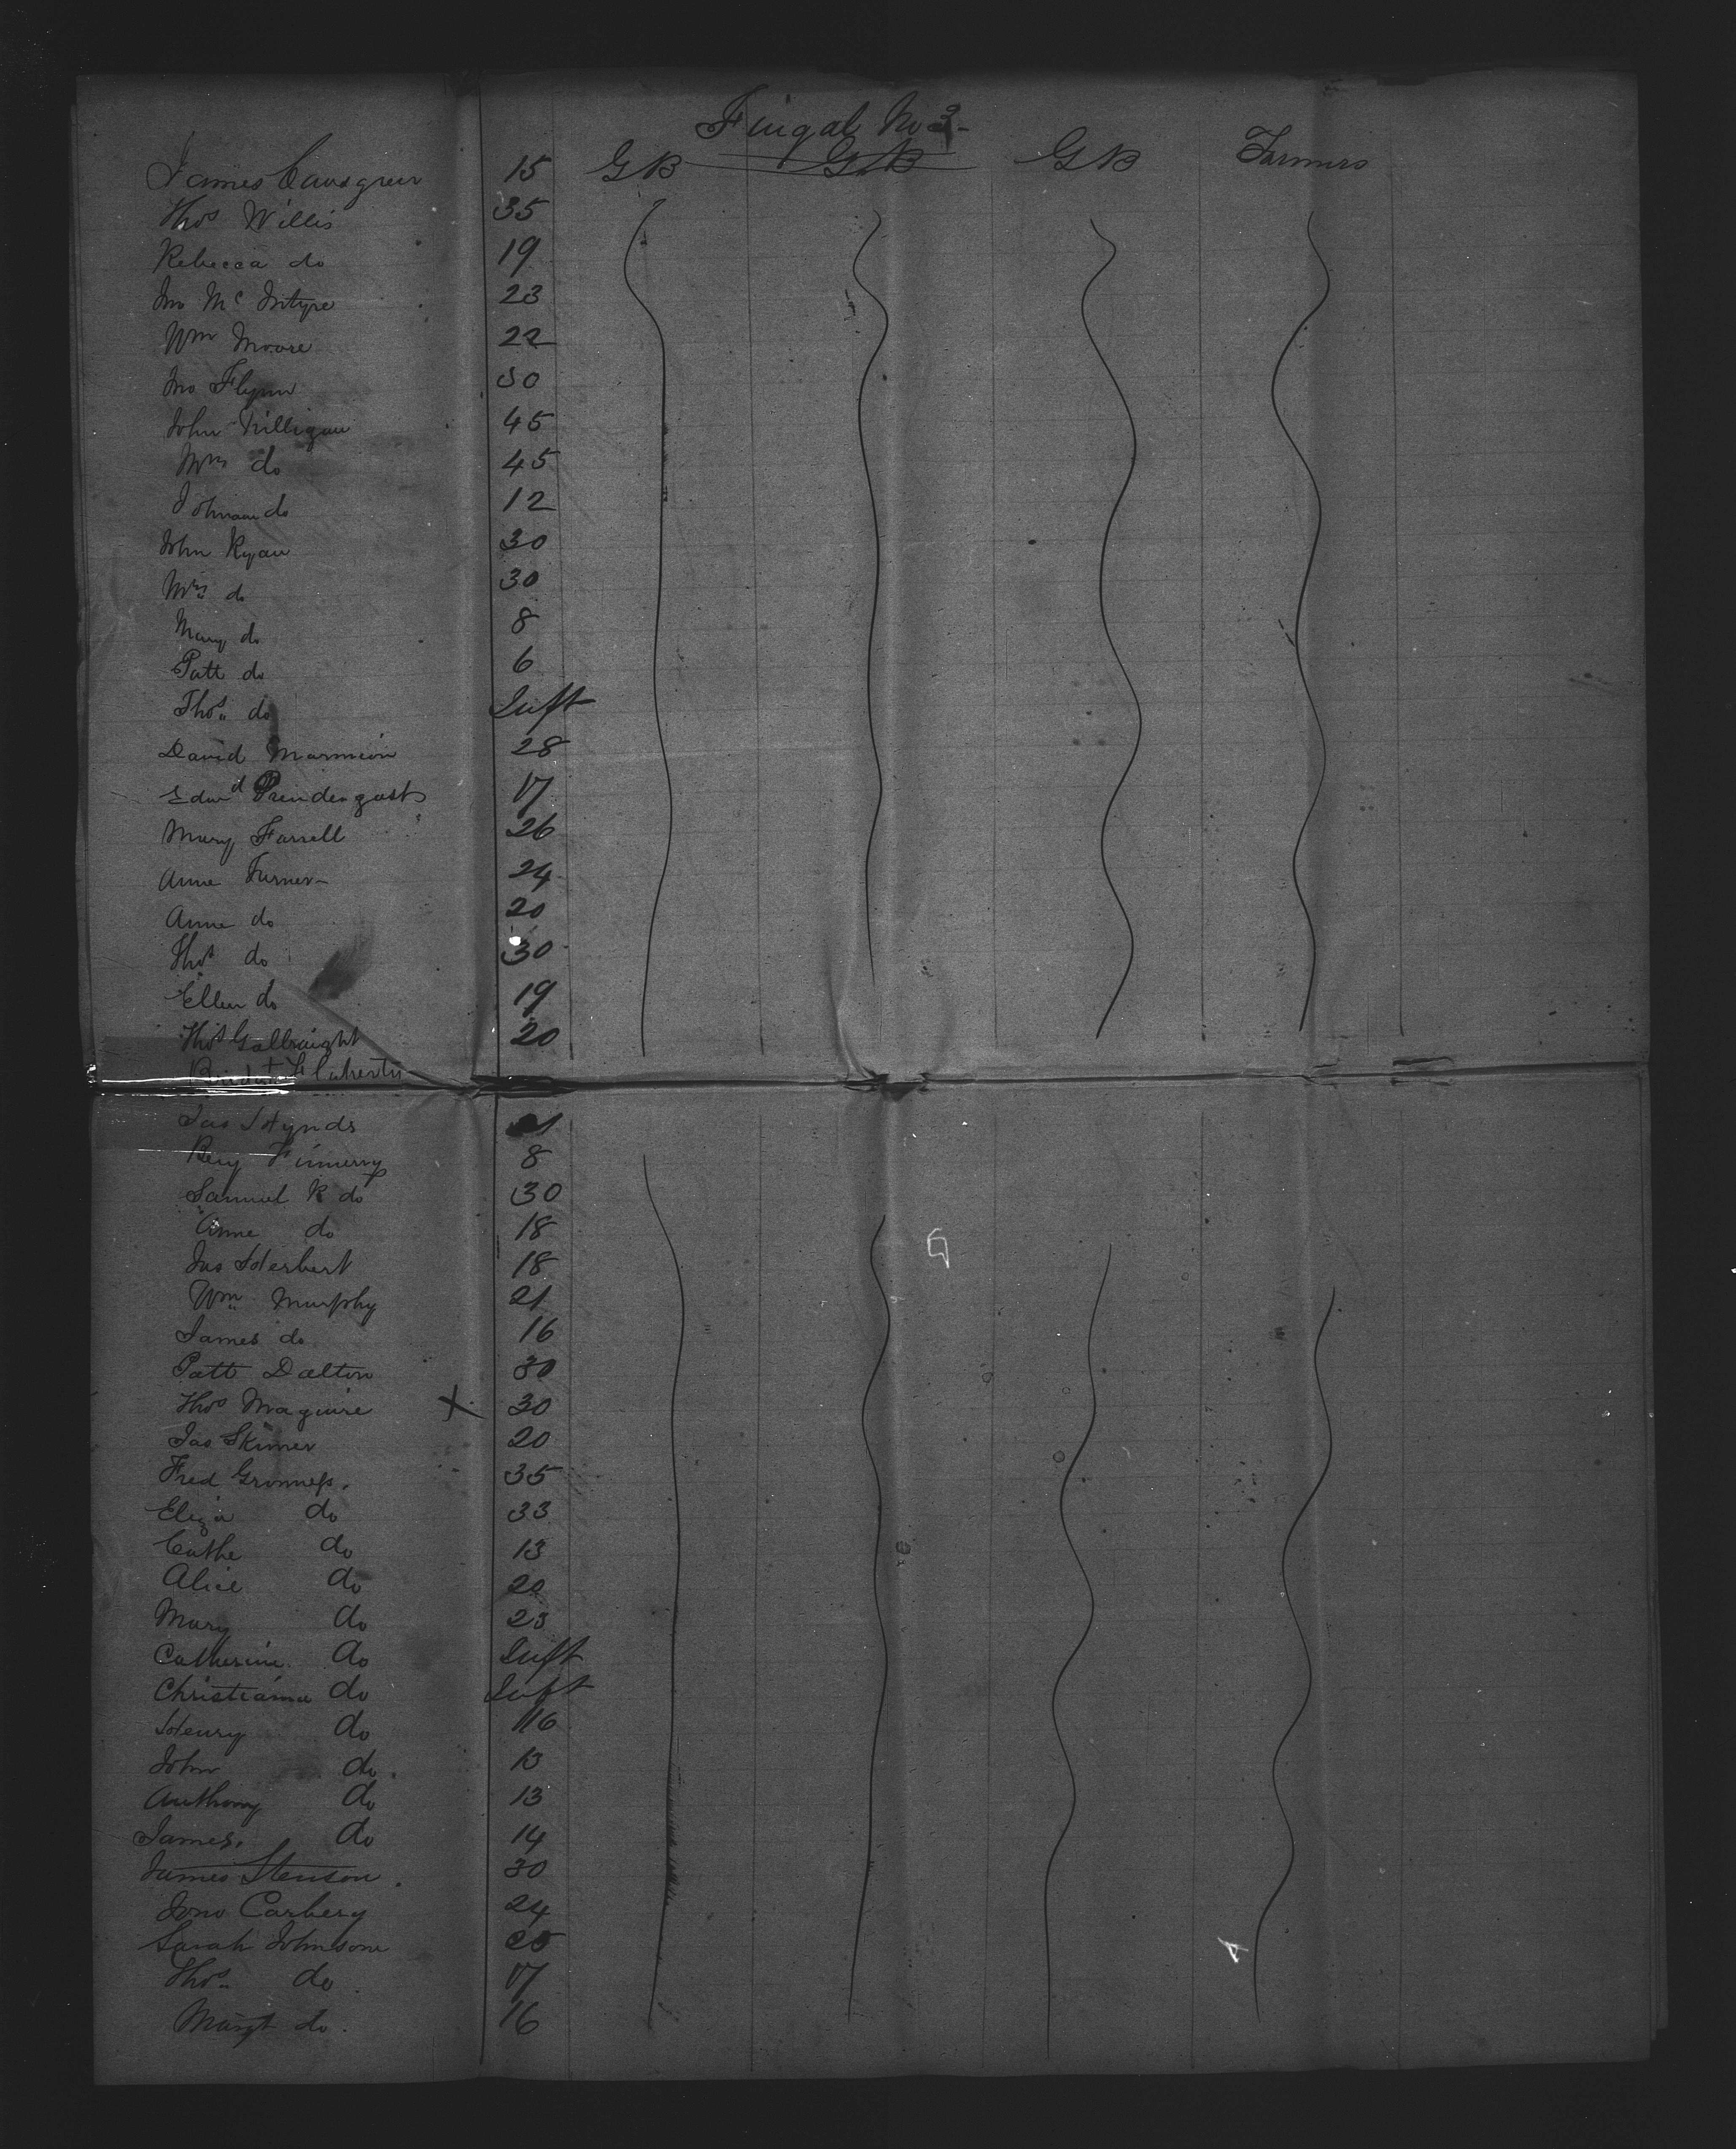 Fingal No 3-
James Causgreev 15 GB GB GB Farmers
Thos Willis 35
Rebecca do 19
Jno Mc Intyre 23
Wm Moore 22
Jno Flynn 30
John Gilligan 45
Mrs do 45
Johnan do 12
John Ryan 30
Mrs do 30
Mary do 8
Patt do 6
Thos do Inft
David Marmion 28
Edwd Prendergast 17
Mary Farrell 26
Anne Turner 24
Anne do 20
Thos do 30
Ellen do 19
Thos Galbraight 20
Bridgt Flaherty
Jas Hynds 21
Benj Finnerry 8
Samuel R do 30
Anne do 18
Jas Herbert 18
Wm Murphy 21
James do 16
Patt Dalton 30
Thos Maguire X 30
Jas Skinner 20
Fred Gronness. 35
Eliza do 33
Cathe do 13
Alice do 20
Mary do 23
Catherine do Inft
Christianna do Inft
Henry do 16
John do. 13
Anthony do 13
James. do 14
James Stenson. 30
Jno Carbery 24
Sarah Johnson 25
Thos do 17
Margt do. 16